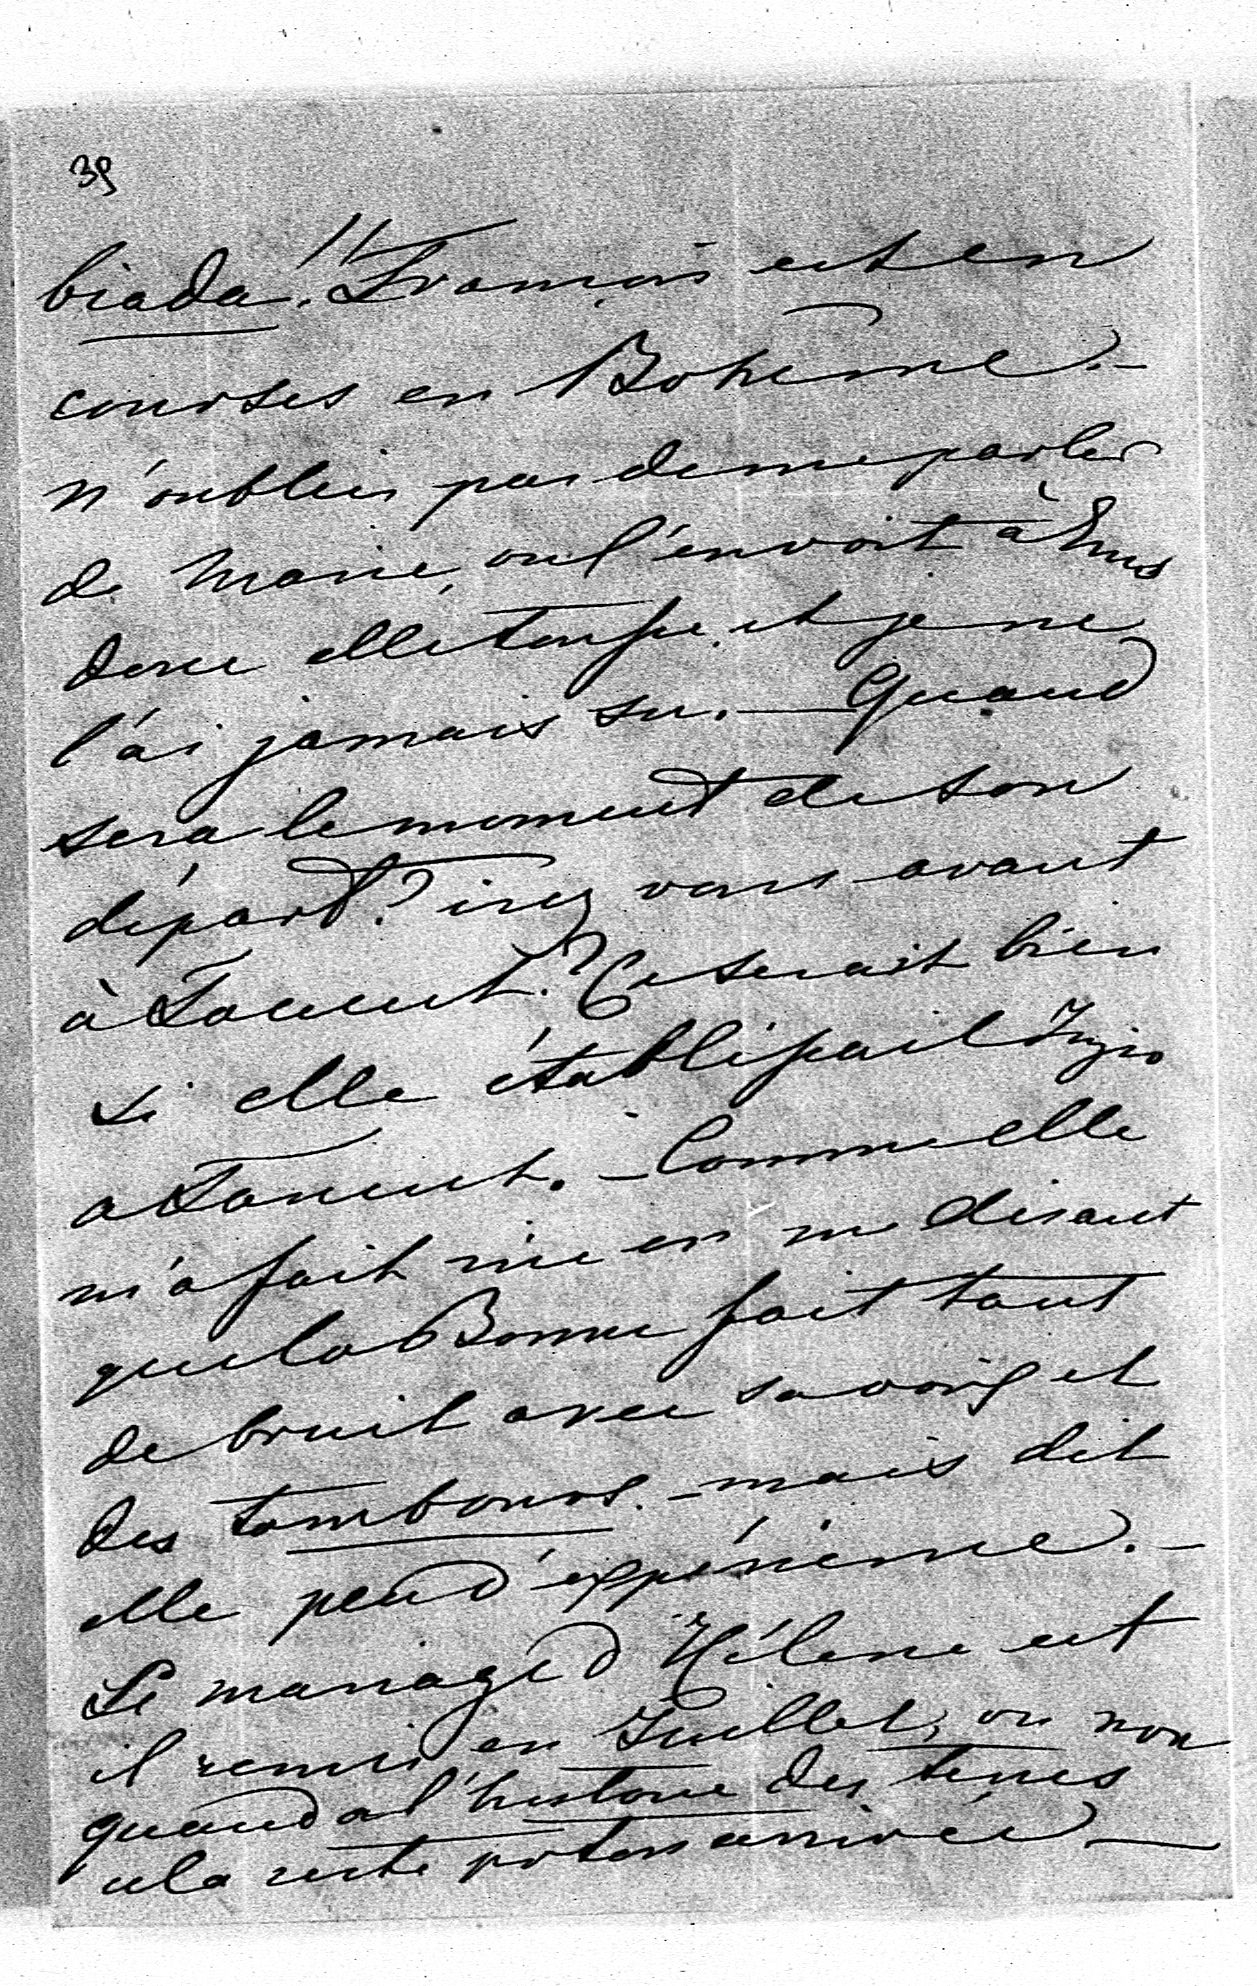 39
biada!! François est en
courses en Bohême. —
n'oubliez pas de me parler
de Marie, on l'envoit à Ems
donc elle tousse et je ne
l'ai jamais su. — Quand
sera le moment de son
départ? irez vous avant
à Lancut? Ce serait bien
si elle établissait Józio
a Lancut. — Comme elle
m'a fait rire en me disant
que la Bonne fait tant
de bruit avec sa voix et
des tambours — mais dit
elle peu d'expérience. —
Le mariage d'Hélène est
il remis en Juillet, ou non
quand a l'histoire des
cela reste arrivée —